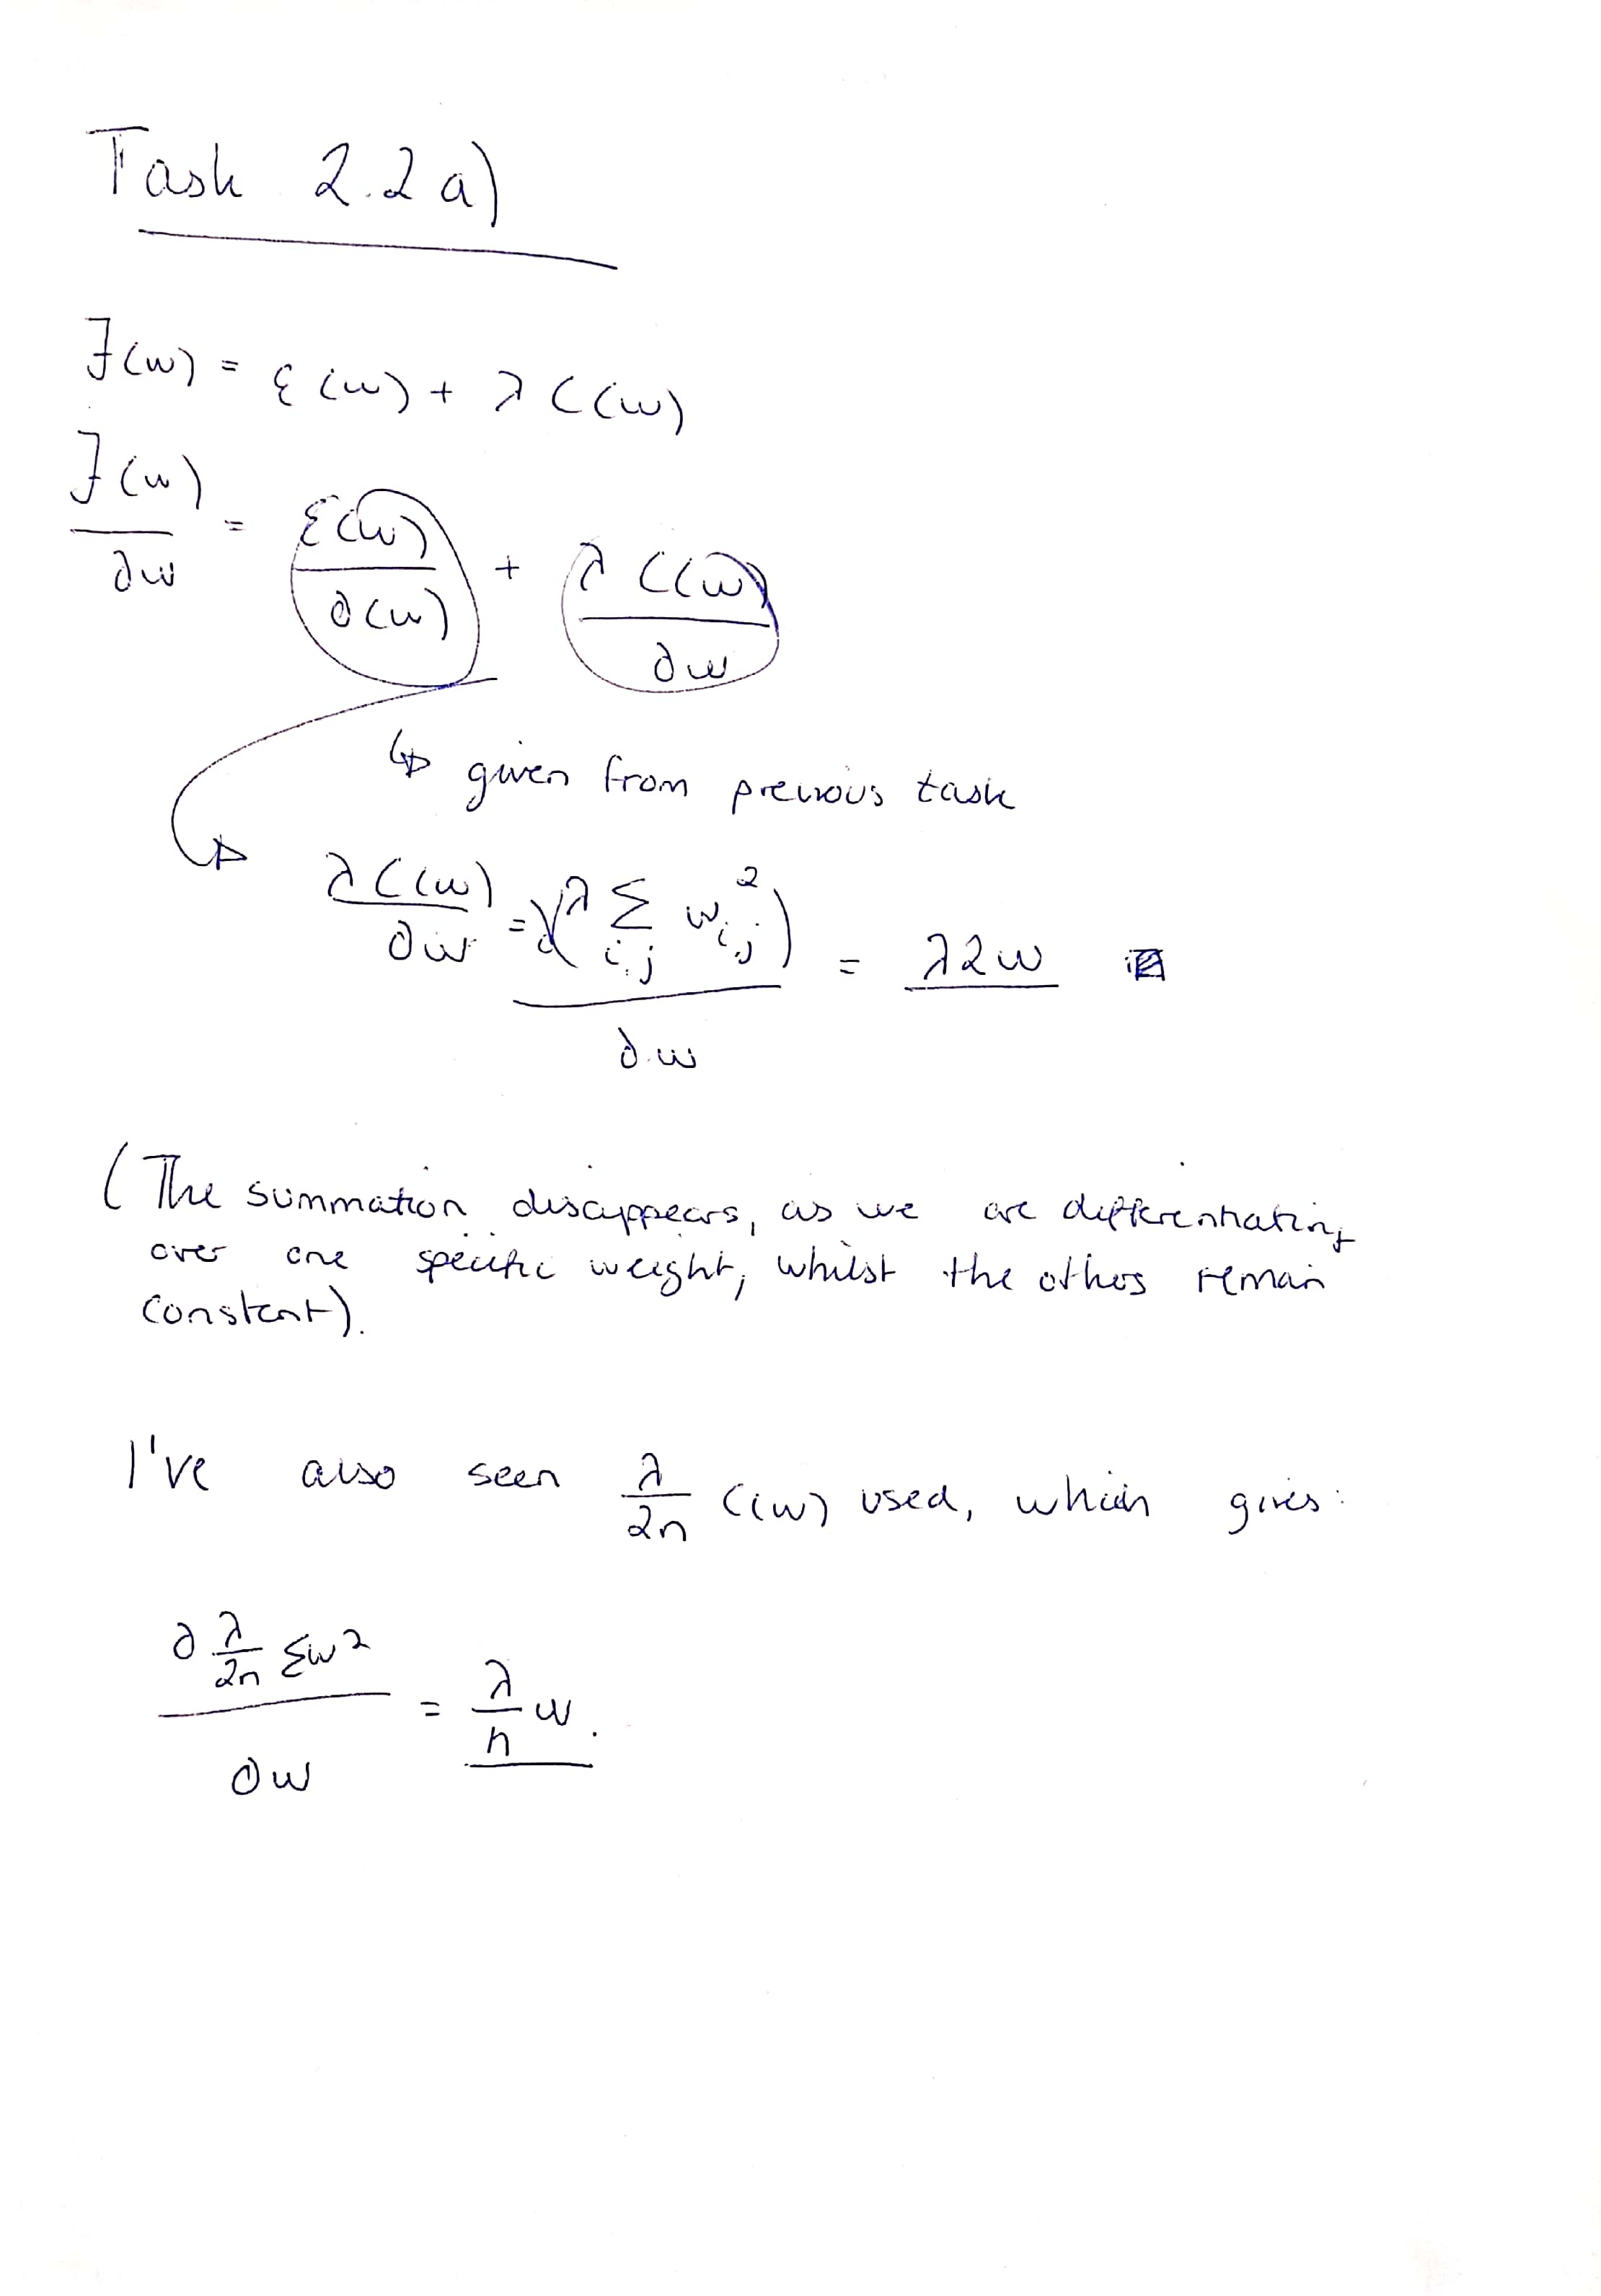 Task 2.2 a)
J(w) = ε(w) + λ C(w)
J(w) / ∂w = ε(w) / ∂(w) + λ C(w) / ∂w
↳ given from previous task
λ C(w) / ∂w = ∂(λ Σ_{i,j} w_{i,j}^2) / ∂w = λ2w
(The summation disappears, as we are differentiating
over one specific weight, whilst the others remain
constant).
I've also seen λ/2n C(w) used, which gives:
∂ λ/2n Σw^2 / ∂w = λ/n w.